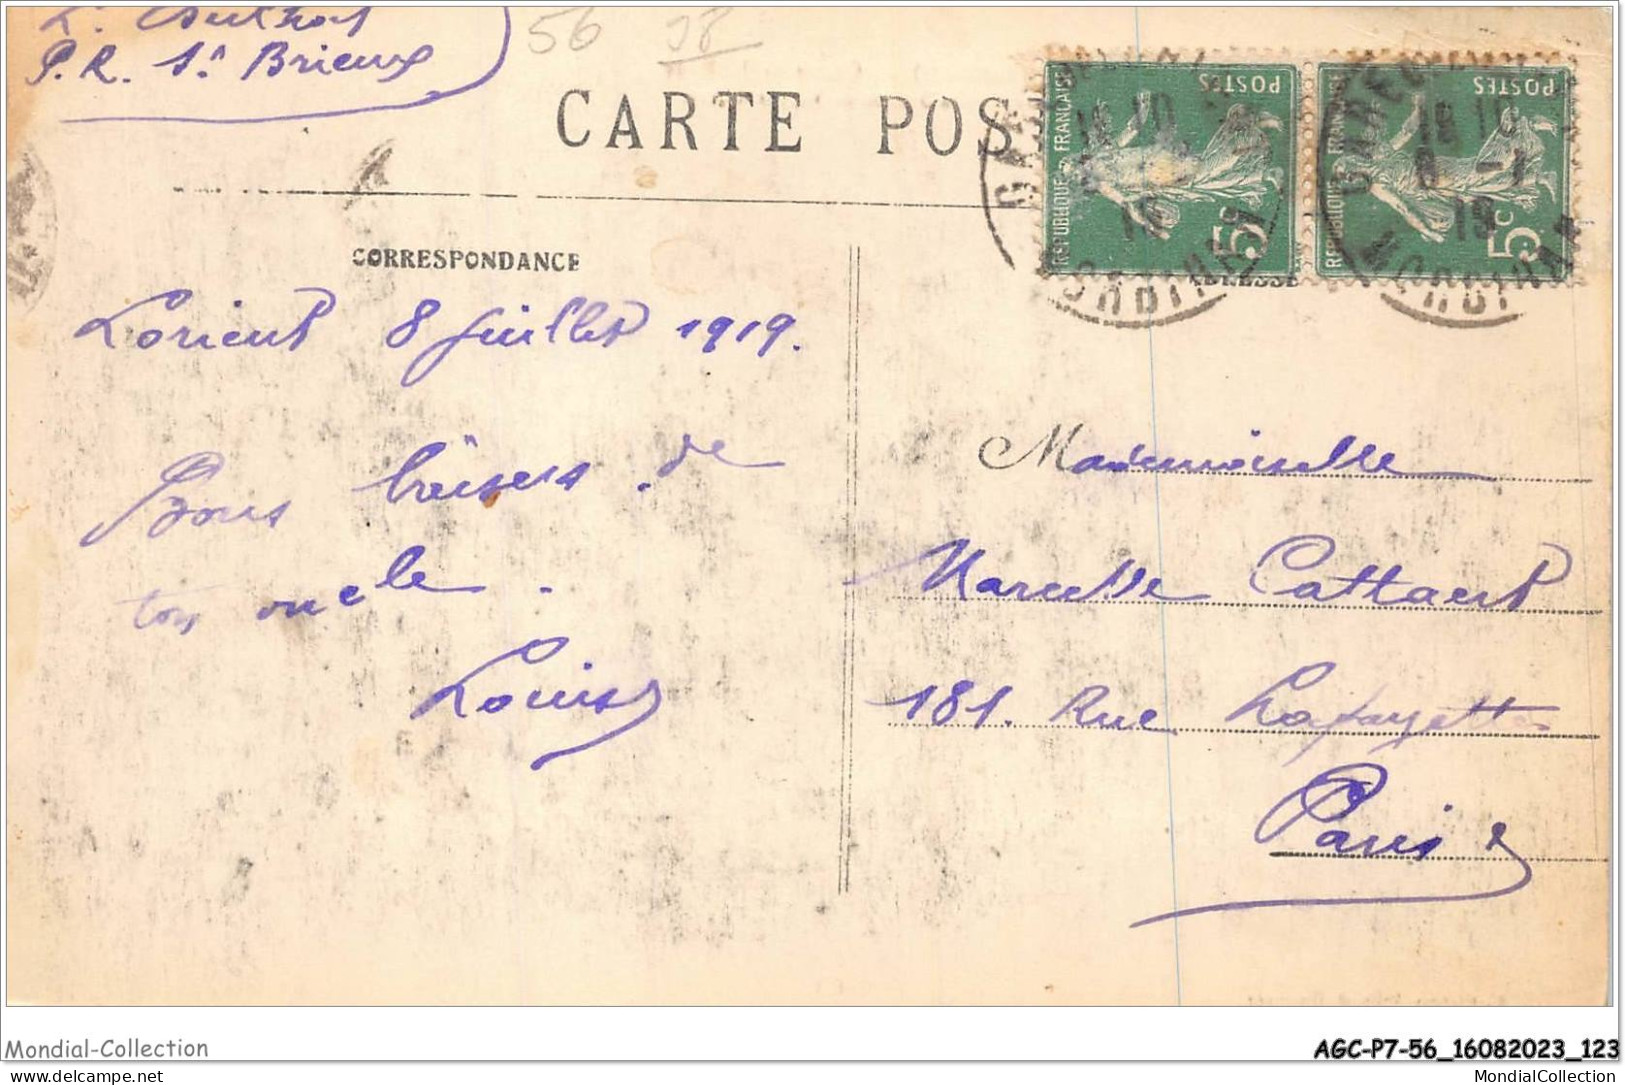 P.R. St Brieux
56
CARTE POS
POSTES
REPUBLIQUE FRANCAISE
5
POSTES
REPUBLIQUE FRANCAISE
5c
GARE
MORBIHAN
19
CORRESPONDANCE
Lorient 8 Juillet 1919.
Bons baisers de
ton oncle.
Louis
Mademoiselle
Marcelle Cattaert
181. Rue Lafayette
Paris
Mondial-Collection
AGC-P7-56_16082023_123
delcampe.net
MondialCollection